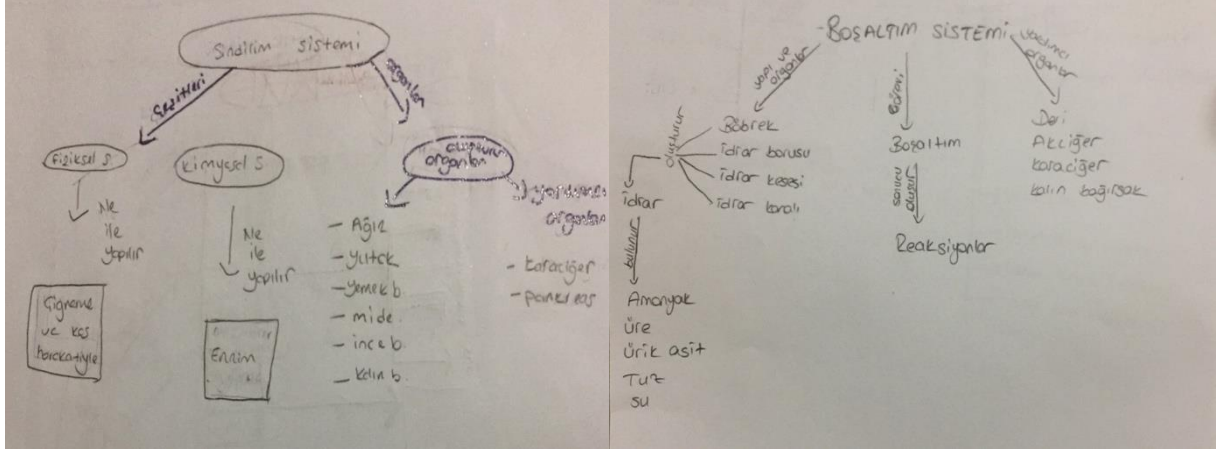 Sindirim sistemi
Çeşitleri
organlar
Fiziksel S.
Kimyasal S.
oluşturan
organları
yardımcı
organları
Ne
ile
yapılır
Ne
ile
yapılır
Çiğneme
ve kas
hareketiyle
Enzim
- Ağız
- yutak
- yemek b.
- mide
- ince b.
- kalın b.
- karaciğer
- pankreas
BOŞALTIM SİSTEMİ
yapı ve
organlar
görevi
yardımcı
organlar
oluşturur
Böbrek
idrar borusu
idrar kesesi
idrar kanalı
Boşaltım
Deri
Akciğer
karaciğer
kalın bağırsak
idrar
sonucu
oluşur
Reaksiyonlar
bulunur
Amonyak
üre
ürik asit
Tuz
su